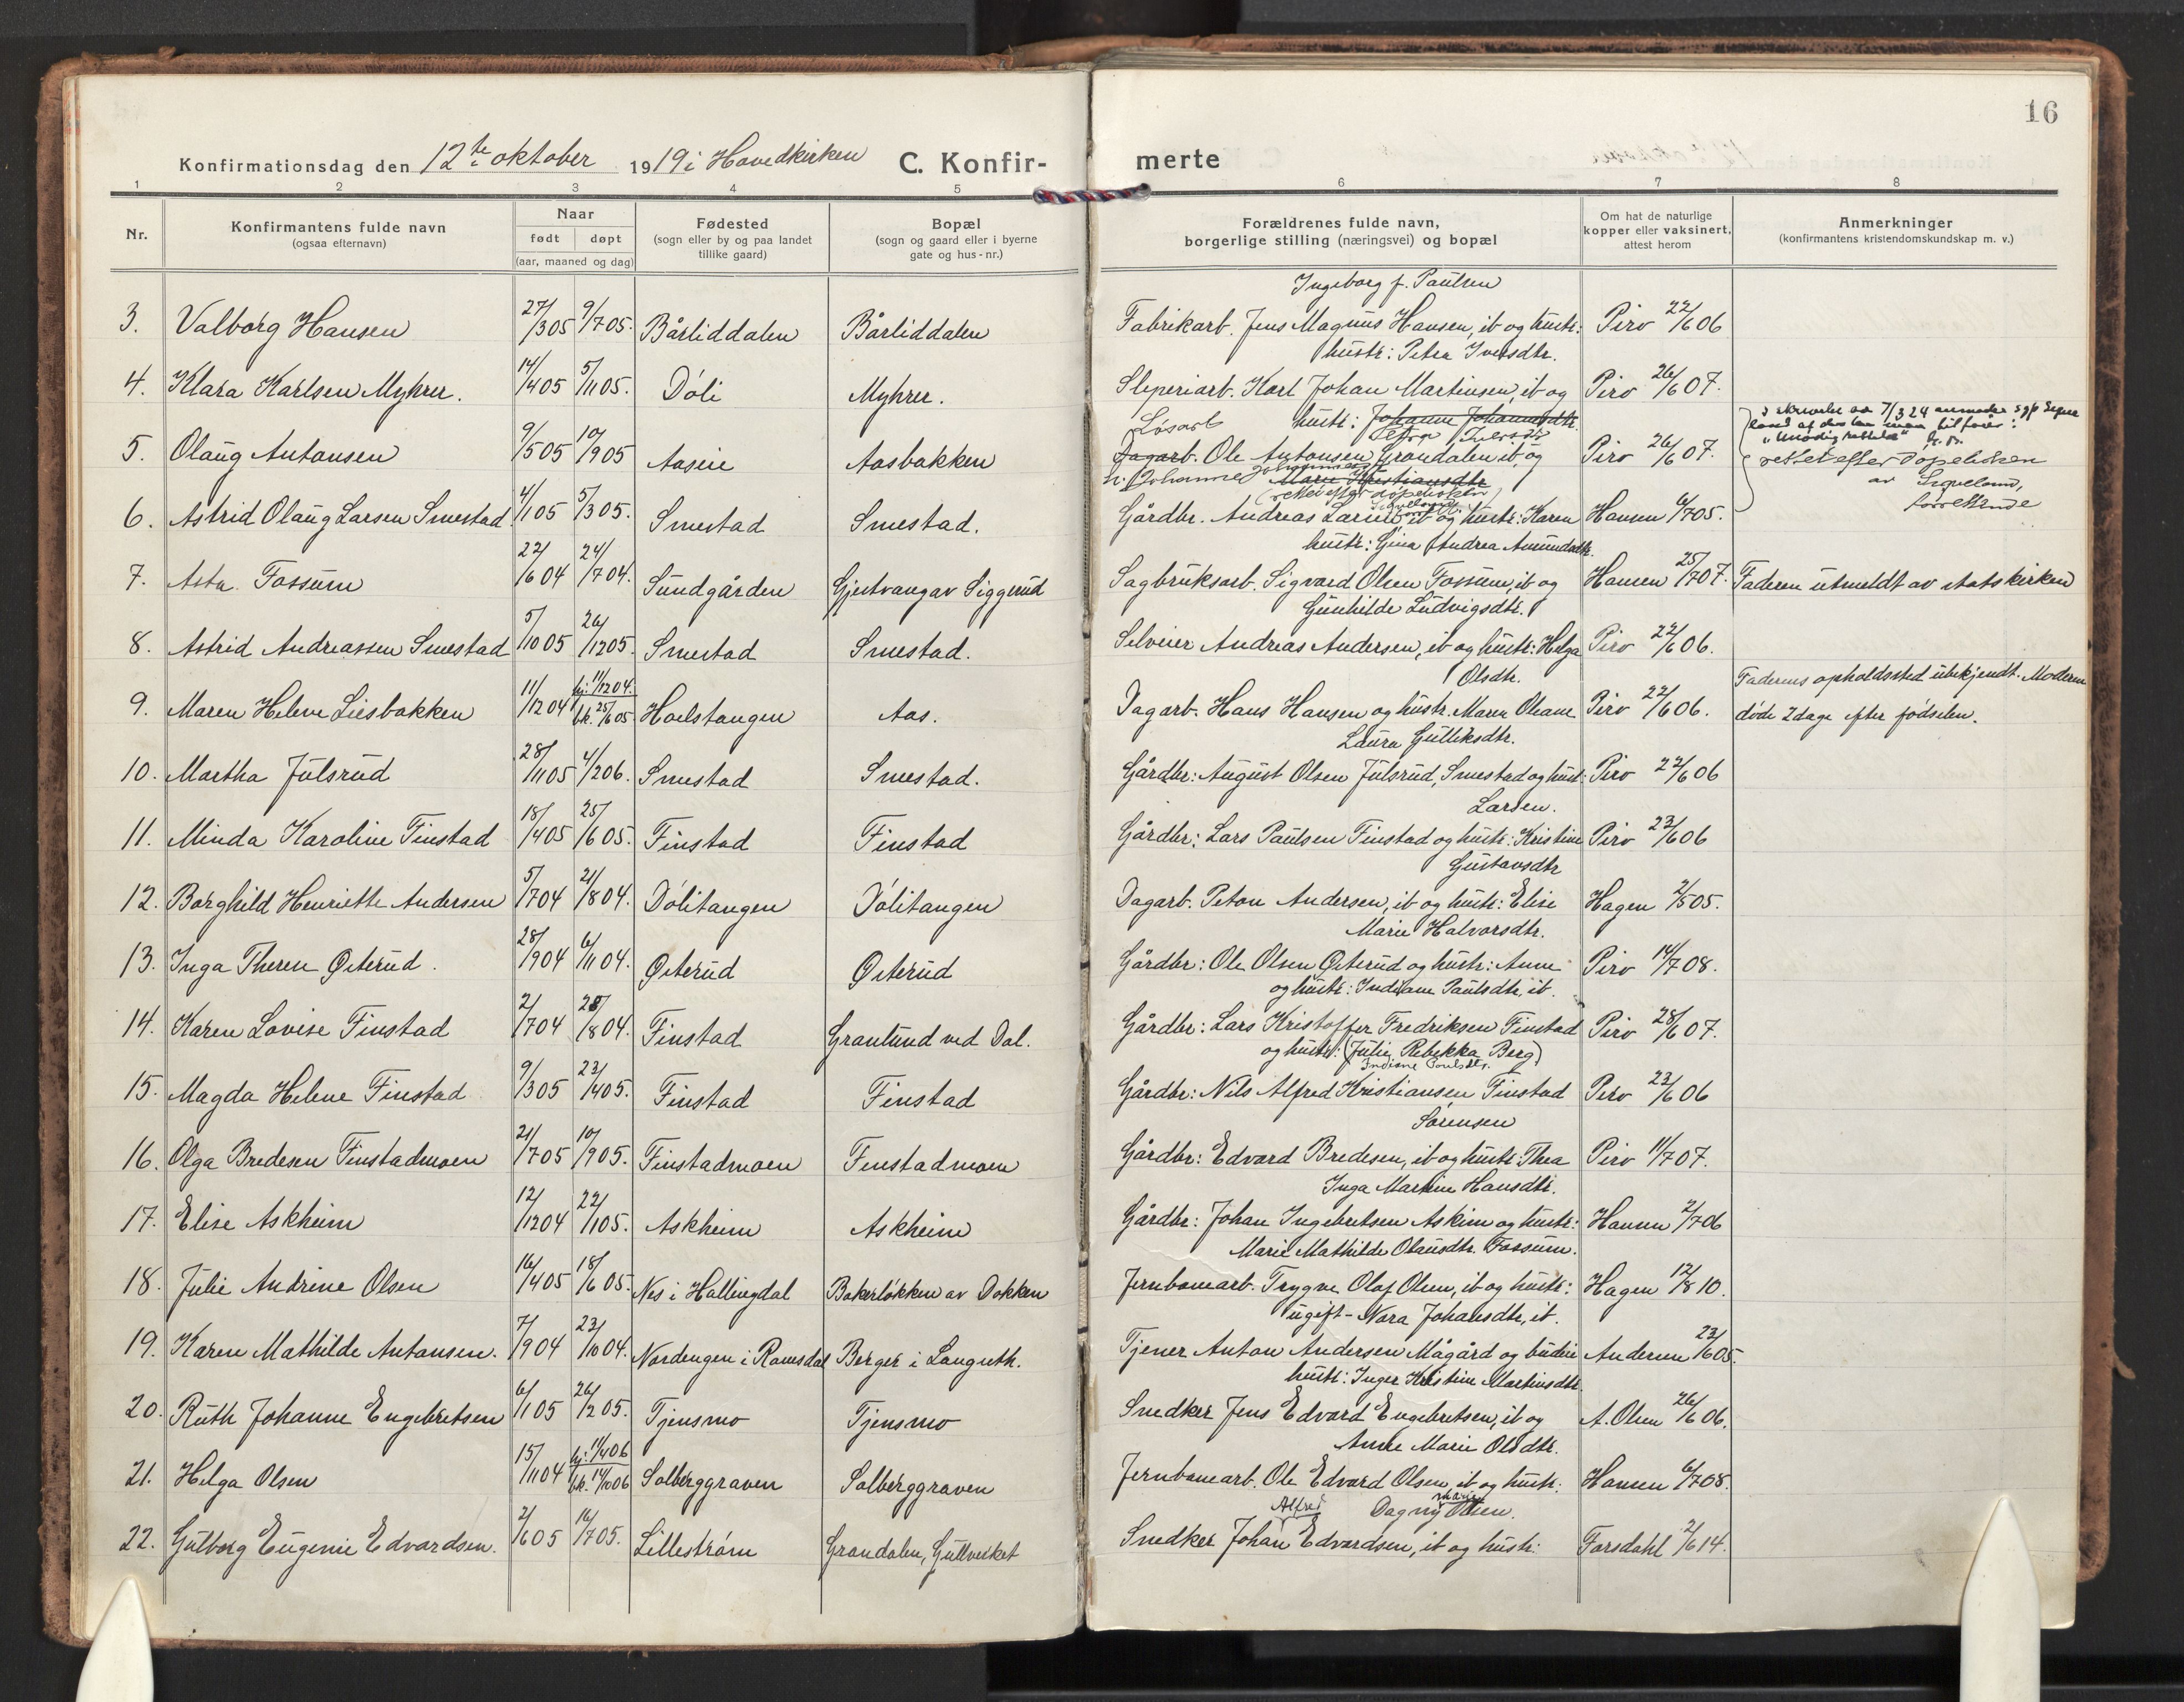 16
Konfirmationsdag den 12te oktober 1919 i Hovedkirken C. Konfir-
merte
1 2 3 4 5
6 7 8
Nr. Konfirmantens fulde navn (ogsaa efternavn) Naar født døpt (aar, maaned og dag) Fødested (sogn eller by og paa landet tillike gaard) Bopæl (sogn og gaard eller i byerne gate og hus-nr.)
Forældrenes fulde navn, borgerlige stilling (næringsvei) og bopæl Om hat de naturlige kopper eller vaksinert, attest herom Anmerkninger (konfirmantens kristendomskundskap m. v.)
3. Valborg Hansen 27/3 05 9/7 05. Bårliddalen Bårliddalen
Ingeborg f. Paulsen
Fabrikarb. Jens Magnus Hansen, ib og hustr: Piro 22/6 06
4. Klara Karlsen Myhrer. 14/4 05 5/11 05. Døli Myhrer.
hustr: Petra Iversdtr.
Sliperiarb. Karl Johan Martinsen, ib og Piro 26/6 07.
5. Olaug Antonsen 9/5 05 10/9 05 Aaseie Aasbakken
Løsarb hustr: Johanne Johannesdtr.
Petra Iversdtr
Dagarb. Ole Antonsen Grandalen ib, og Piro 26/6 07.
h: Johanne Johannesdtr Marie Kristiansdtr
rettet efter døpeboken
rettet efter Døpeboken
av Segelund,
forrettende
6. Astrid Olaug Larsen Smestad 4/1 05 5/3 05. Smestad Smestad.
Gårdbr. Andreas Larsen ib og hustr: Karen Hansen 6/7 05.
7. Asta Fossum 22/6 04 24/7 04. Sundgården Gjestvang av Siggerud
hustr: Gina Andrea Amundsdtr.
Sagbruksarb. Sigvard Olsen Fossum, ib og Hansen 25/7 07. Faderen utmeldt av statskirken
8. Astrid Andreassen Smestad 5/10 05 26/12 05. Smestad Smestad.
Gunhilde Ludvigsdtr.
Selveier Andreas Andersen, ib og hustr: Helga Piro 22/6 06.
9. Maren Helene Liesbakken 11/12 04 hj: 11/12 04. bk. 25/6 05 Hoelstangen Aas.
Olsdtr.
Dagarb. Hans Hansen og hustr. Maren Oleane Piro 22/6 06. Faderens opholdssted ubekjendt. Moderen
døde 2 dage efter fødselen.
10. Martha Julsrud 28/11 05 4/2 06. Smestad Smestad.
Laura Gulliksdtr.
Gårdbr: August Olsen Julsrud, Smestad og hust: Piro 22/6 06
11. Minda Karoline Finstad 18/4 05 25/6 05. Finstad Finstad
Larsen.
Gårdbr: Lars Paulsen Finstad og hustr: Kristine Piro 23/6 06
12. Borghild Henriette Andersen 5/7 04 21/8 04. Dølitangen Dølitangen
Gustavsdtr
Dagarb. Peton Andersen, ib og hustr: Elise Hagen 2/5 05.
13. Inga Therese Østerud. 28/9 04 6/11 04. Østerud Østerud
Marie Halvorsdtr.
Gårdbr: Ole Olsen Østerud og hustr: Anne Piro 14/7 08.
14. Karen Lovise Finstad 2/7 04 28/8 04. Finstad Granlund ved Dal.
og hustr: Indiane Paulsdtr, ib.
Gårdbr: Lars Kristoffer Fredriksen Finstad Piro 28/6 07.
15. Magda Helene Finstad 9/3 05 23/4 05. Finstad Finstad
og hustr: (Julie Rebekka Berg)
Indiane Paulsdtr.
Gårdbr: Nils Alfred Kristiansen Finstad Piro 23/6 06
16. Olga Bredesen Finstadmoen 21/7 05 10/9 05. Finstadmoen Finstadmoen
Sørensen
Gårdbr: Edvard Bredesen, ib og hustr: Thea Piro 11/7 07.
17. Elise Askheim 12/12 04 22/1 05. Askheim Askheim
Inga Martine Hansdtr.
Gårdbr: Johan Ingebretsen Askim og hustr: Hansen 2/7 06
18. Julie Andrine Olsen 16/4 05 18/6 05. Nes i Hallingdal Bakerløkken av Dokken
Marie Mathilde Olausdtr. Fossum.
Jernbanearb. Trygve Olaf Olsen, ib og hustr: Hagen 12/8 10.
19. Karen Mathilde Antonsen. 7/9 04 23/10 04. Nordengen i Ramsdal Berger i Languth.
ugift - Nora Johansdtr, ib.
Tjener Anton Andersen Mågård og budeie Andersen 23/6 05.
20. Ruth Johanne Engebretsen 6/1 05 26/2 05. Tjensmo Tjensmo
hustr: Inger Kristine Martinsdtr.
Snedker Jens Edvard Engebretsen, ib og A. Olsen 26/6 06.
21. Helga Olsen 15/11 04 hj: 11/4 06 bk. 14/10 06 Solberggraven Solberggraven
Anne Marie Olsdtr.
Jernbanearb. Ole Edvard Olsen, ib og hustr: Hansen 6/7 08.
22. Gulborg Eugenie Edvardsen. 2/6 05 16/7 05. Lillestrøm Grandalen, Gullverket
Alfred Dagny Marie Olsen.
Snedker Johan Edvardsen, ib og hustr: Forsdahl 2/6 14.